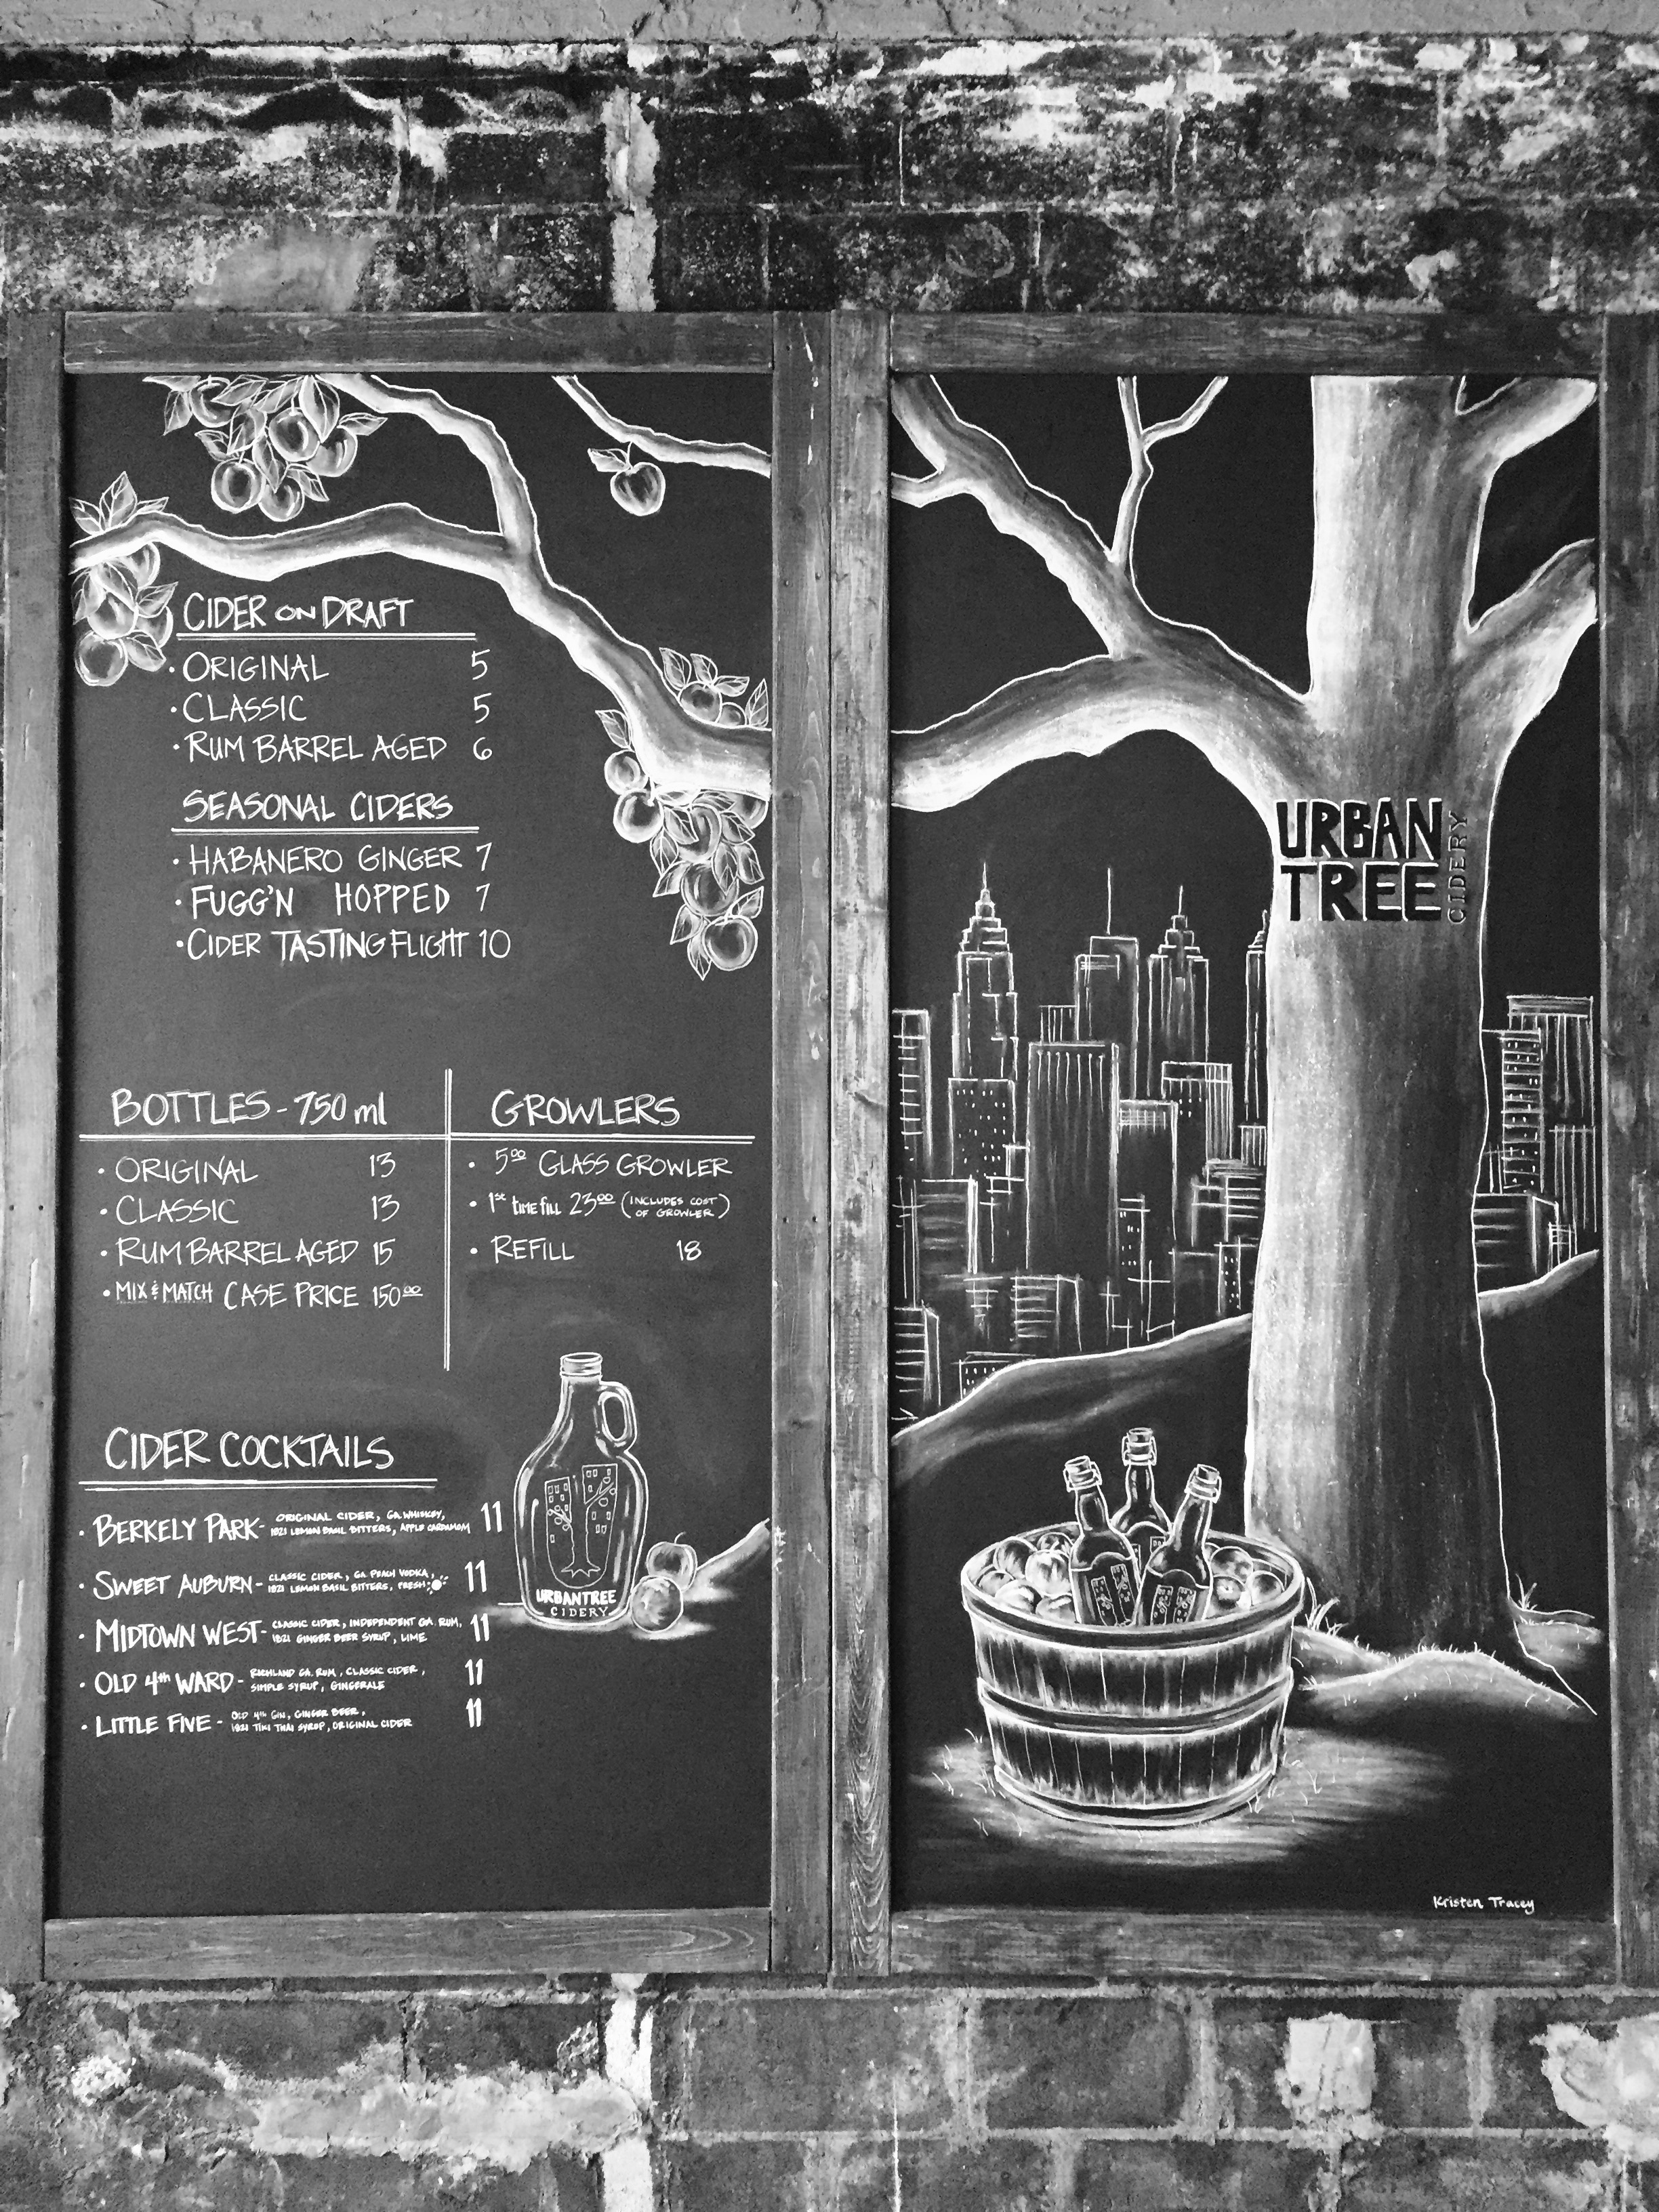 CIDER ON DRAFT
• ORIGINAL 5
• CLASSIC 5
• RUM BARREL AGED 6
SEASONAL CIDERS
• HABANERO GINGER 7
• FUGG'N HOPPED 7
• CIDER TASTING FLIGHT 10
BOTTLES - 750 ml
• ORIGINAL 13
• CLASSIC 13
• RUM BARREL AGED 15
• MIX & MATCH CASE PRICE 150.00
GROWLERS
• 5.00 GLASS GROWLER
• 1st time fill 23.00 (INCLUDES COST
OF GROWLER)
• REFILL 18
CIDER COCKTAILS
• BERKELY PARK - ORIGINAL CIDER, GA. WHISKEY,
1821 LEMON BASIL BITTERS, APPLE CARDAMOM 11
• SWEET AUBURN - CLASSIC CIDER, GA PEACH VODKA,
1821 LEMON BASIL BITTERS, FRESH 11
• MIDTOWN WEST - CLASSIC CIDER, INDEPENDENT GA. RUM,
1821 GINGER BEER SYRUP, LIME 11
• OLD 4th WARD - RICHLAND GA. RUM, CLASSIC CIDER,
SIMPLE SYRUP, GINGERALE 11
• LITTLE FIVE - OLD 4th GIN, GINGER BEER,
1821 TIKI THAI SYRUP, ORIGINAL CIDER 11
URBANTREE
CIDERY
URBAN
TREE
CIDERY
Kristen Tracey